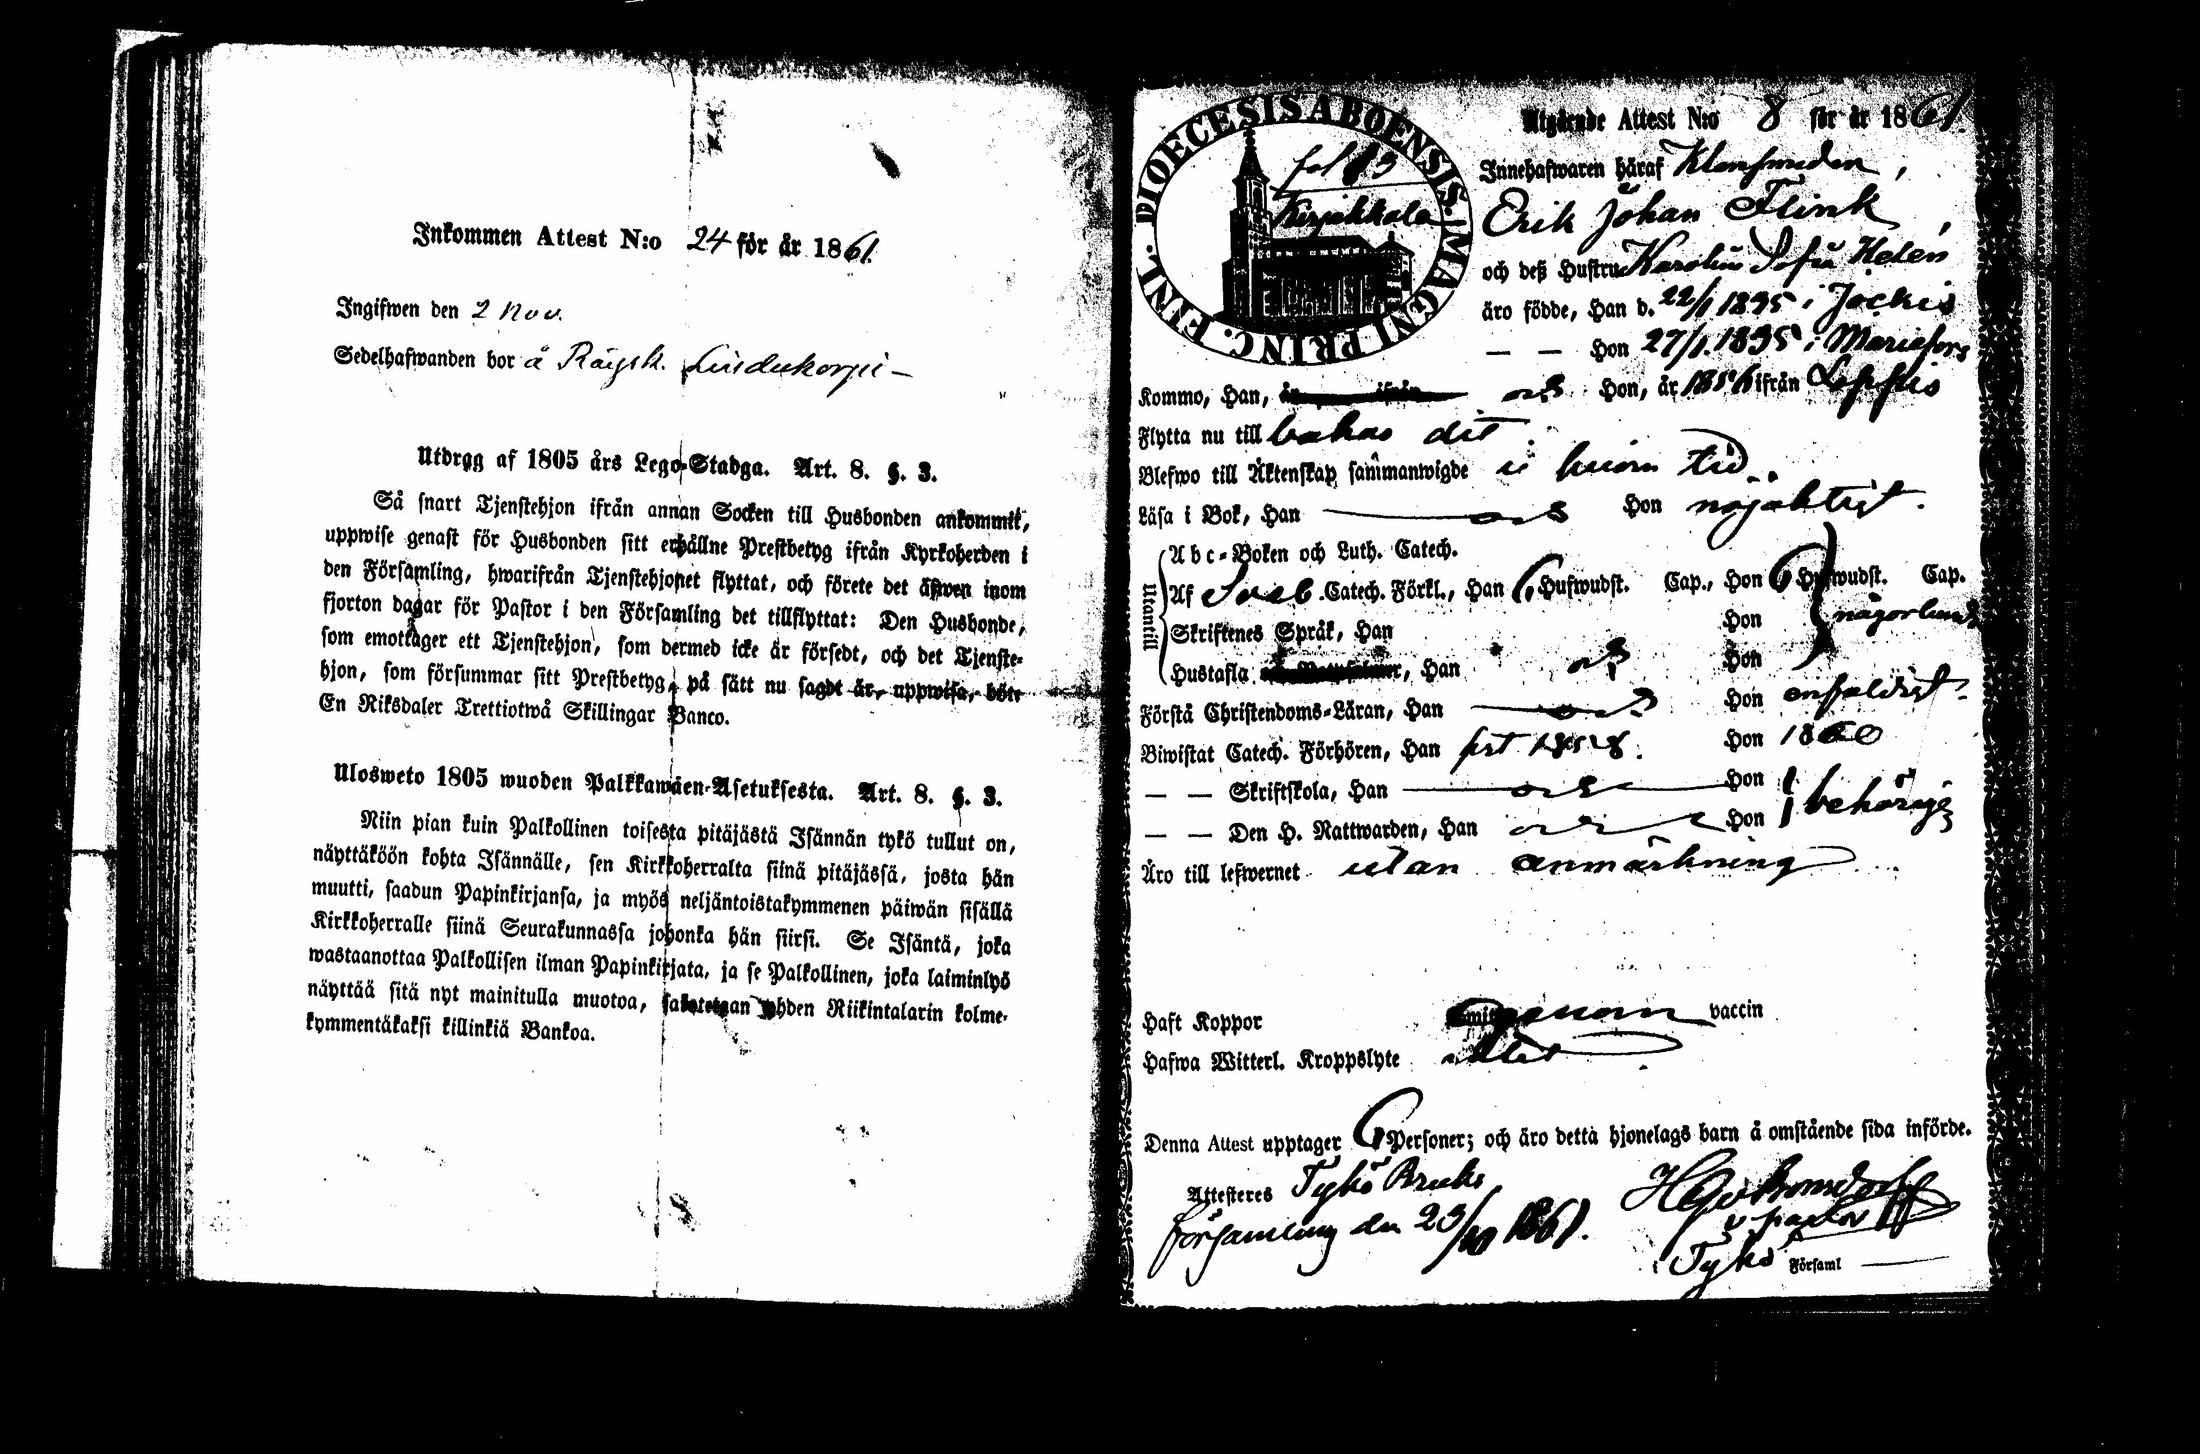 Inkommen Attest N:o 24 för år 1861.
Ingifwen den 2 Nov.
Sedelhafwanden bor å
Utdrag af 1805 års Lego-Stadga. Art. 8. §. 3.
Så snart Tjenstehjon ifrån annan Socken till Husbonden ankommit,
uppwise genast för Husbonden sitt erhållne Prestbetyg ifrån Kyrkoherden i
den Församling, hwarifrån Tjenstehjonet flyttat, och förete det äfwen inom
fjorton dagar för Pastor i den Församling det tillflyttat: Den Husbonde,
som emottager ett Tjenstehjon, som dermed icke är försedt, och det Tjenste-
hjon, som försummar sitt Prestbetyg, på sätt nu sagdt är, uppwisa, böte
En Riksdaler Trettiotwå Skillingar Banco.
Ulosweto 1805 wuoden Palkkawäen-Asetuksesta. Art. 8. §. 3.
Niin pian kuin Palkollinen toisesta pitäjästä Isännän tykö tullut on,
näyttäköön kohta Isännälle, sen Kirkkoherralta siinä pitäjässä, josta hän
muutti, saadun Papinkirjansa, ja myös neljäntoistakymmenen päiwän sisällä
Kirkkoherralle siinä Seurakunnassa johonka hän siirsi. Se Isäntä, joka
wastaanottaa Palkollisen ilman Papinkirjata, ja se Palkollinen, joka laiminlyö
näyttää sitä nyt mainitulla muotoa, sakotetaan yhden Riikintalarin kolme-
kymmentäkaksi killinkiä Bankoa.
DIOECESIS ABOENSIS. MAGNI PRINC. FINL.
fol 83
Kirjakkala
Utgående Attest N:o 8 för år 1861.
Innehafwaren häraf Klensmeden,
Erik Johan Flink,
och deß Hustru Karolina Sofia Helén
äro födde, Han d. 22/1 1835 i Jockis
— — Hon 27/1 1835 i Mariefors
Kommo, Han, år ifrån och Hon, år 1856 ifrån Loppis
Flytta nu till bakas dit.
Blefwo till Äktenskap sammanwigde i behörig tid.
Läsa i Bok, Han och Hon nöjaktigt.
Utantill
Abc-Boken och Luth. Catech.
Af Sveb. Catech. Förkl., Han 6 Hufwudst. Cap., Hon 6 Hufwudst. Cap.
Skriftenes Språk, Han Hon någorlunda
Hustafla, Han och Hon
Förstå Christendoms-Läran, Han och Hon enfaldigt.
Biwistat Catech. Förhören, Han sist 1858. Hon 1860
— — Skriftskola, Han och Hon
— — Den H. Nattwarden, Han och Hon behörigen
Äro till lefwernet utan anmärkning
Haft Koppor genom vaccin
Hafwa Witterl. Kroppslyte intet
Denna Attest upptager 6 Personer; och äro detta hjonelags barn å omstående sida införde.
Attesteres Tykö Bruks
församling den 23/10 1861.
v. pastor
i Tykö Församl